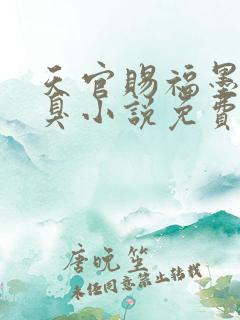 天官赐福墨
臭小说免费
唐晚笙
未经同意禁止转载